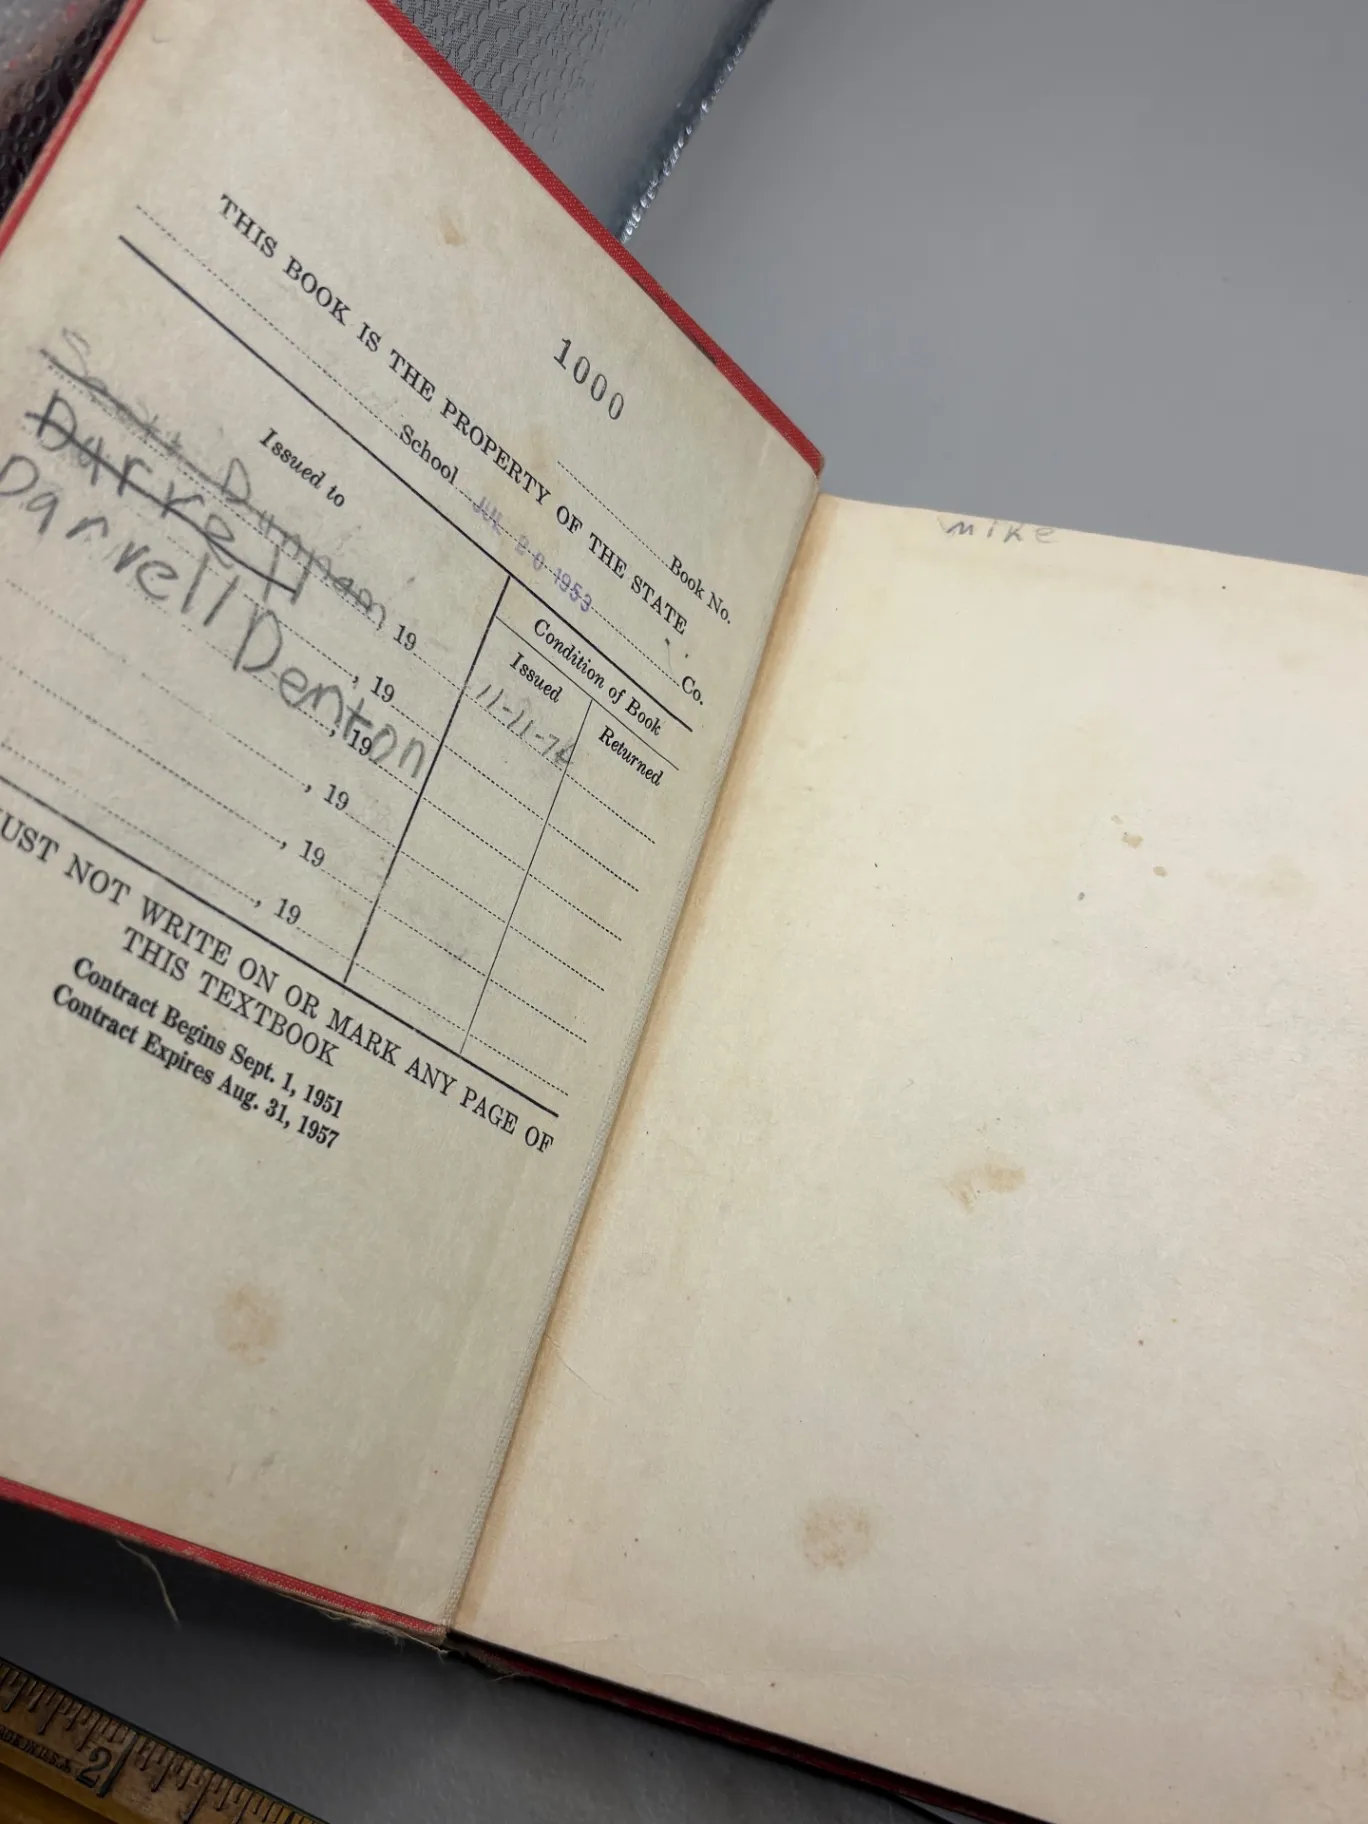 1000
Book No.
THIS BOOK IS THE PROPERTY OF THE STATE
School JUL 20 1953 Co.
Issued to
Condition of Book
Issued
Returned
Scott Dunnam, 19
11-11-76
Darrell, 19
Darrell Denton, 19
, 19
, 19
, 19
UST NOT WRITE ON OR MARK ANY PAGE OF
THIS TEXTBOOK
Contract Begins Sept. 1, 1951
Contract Expires Aug. 31, 1957
mike
2